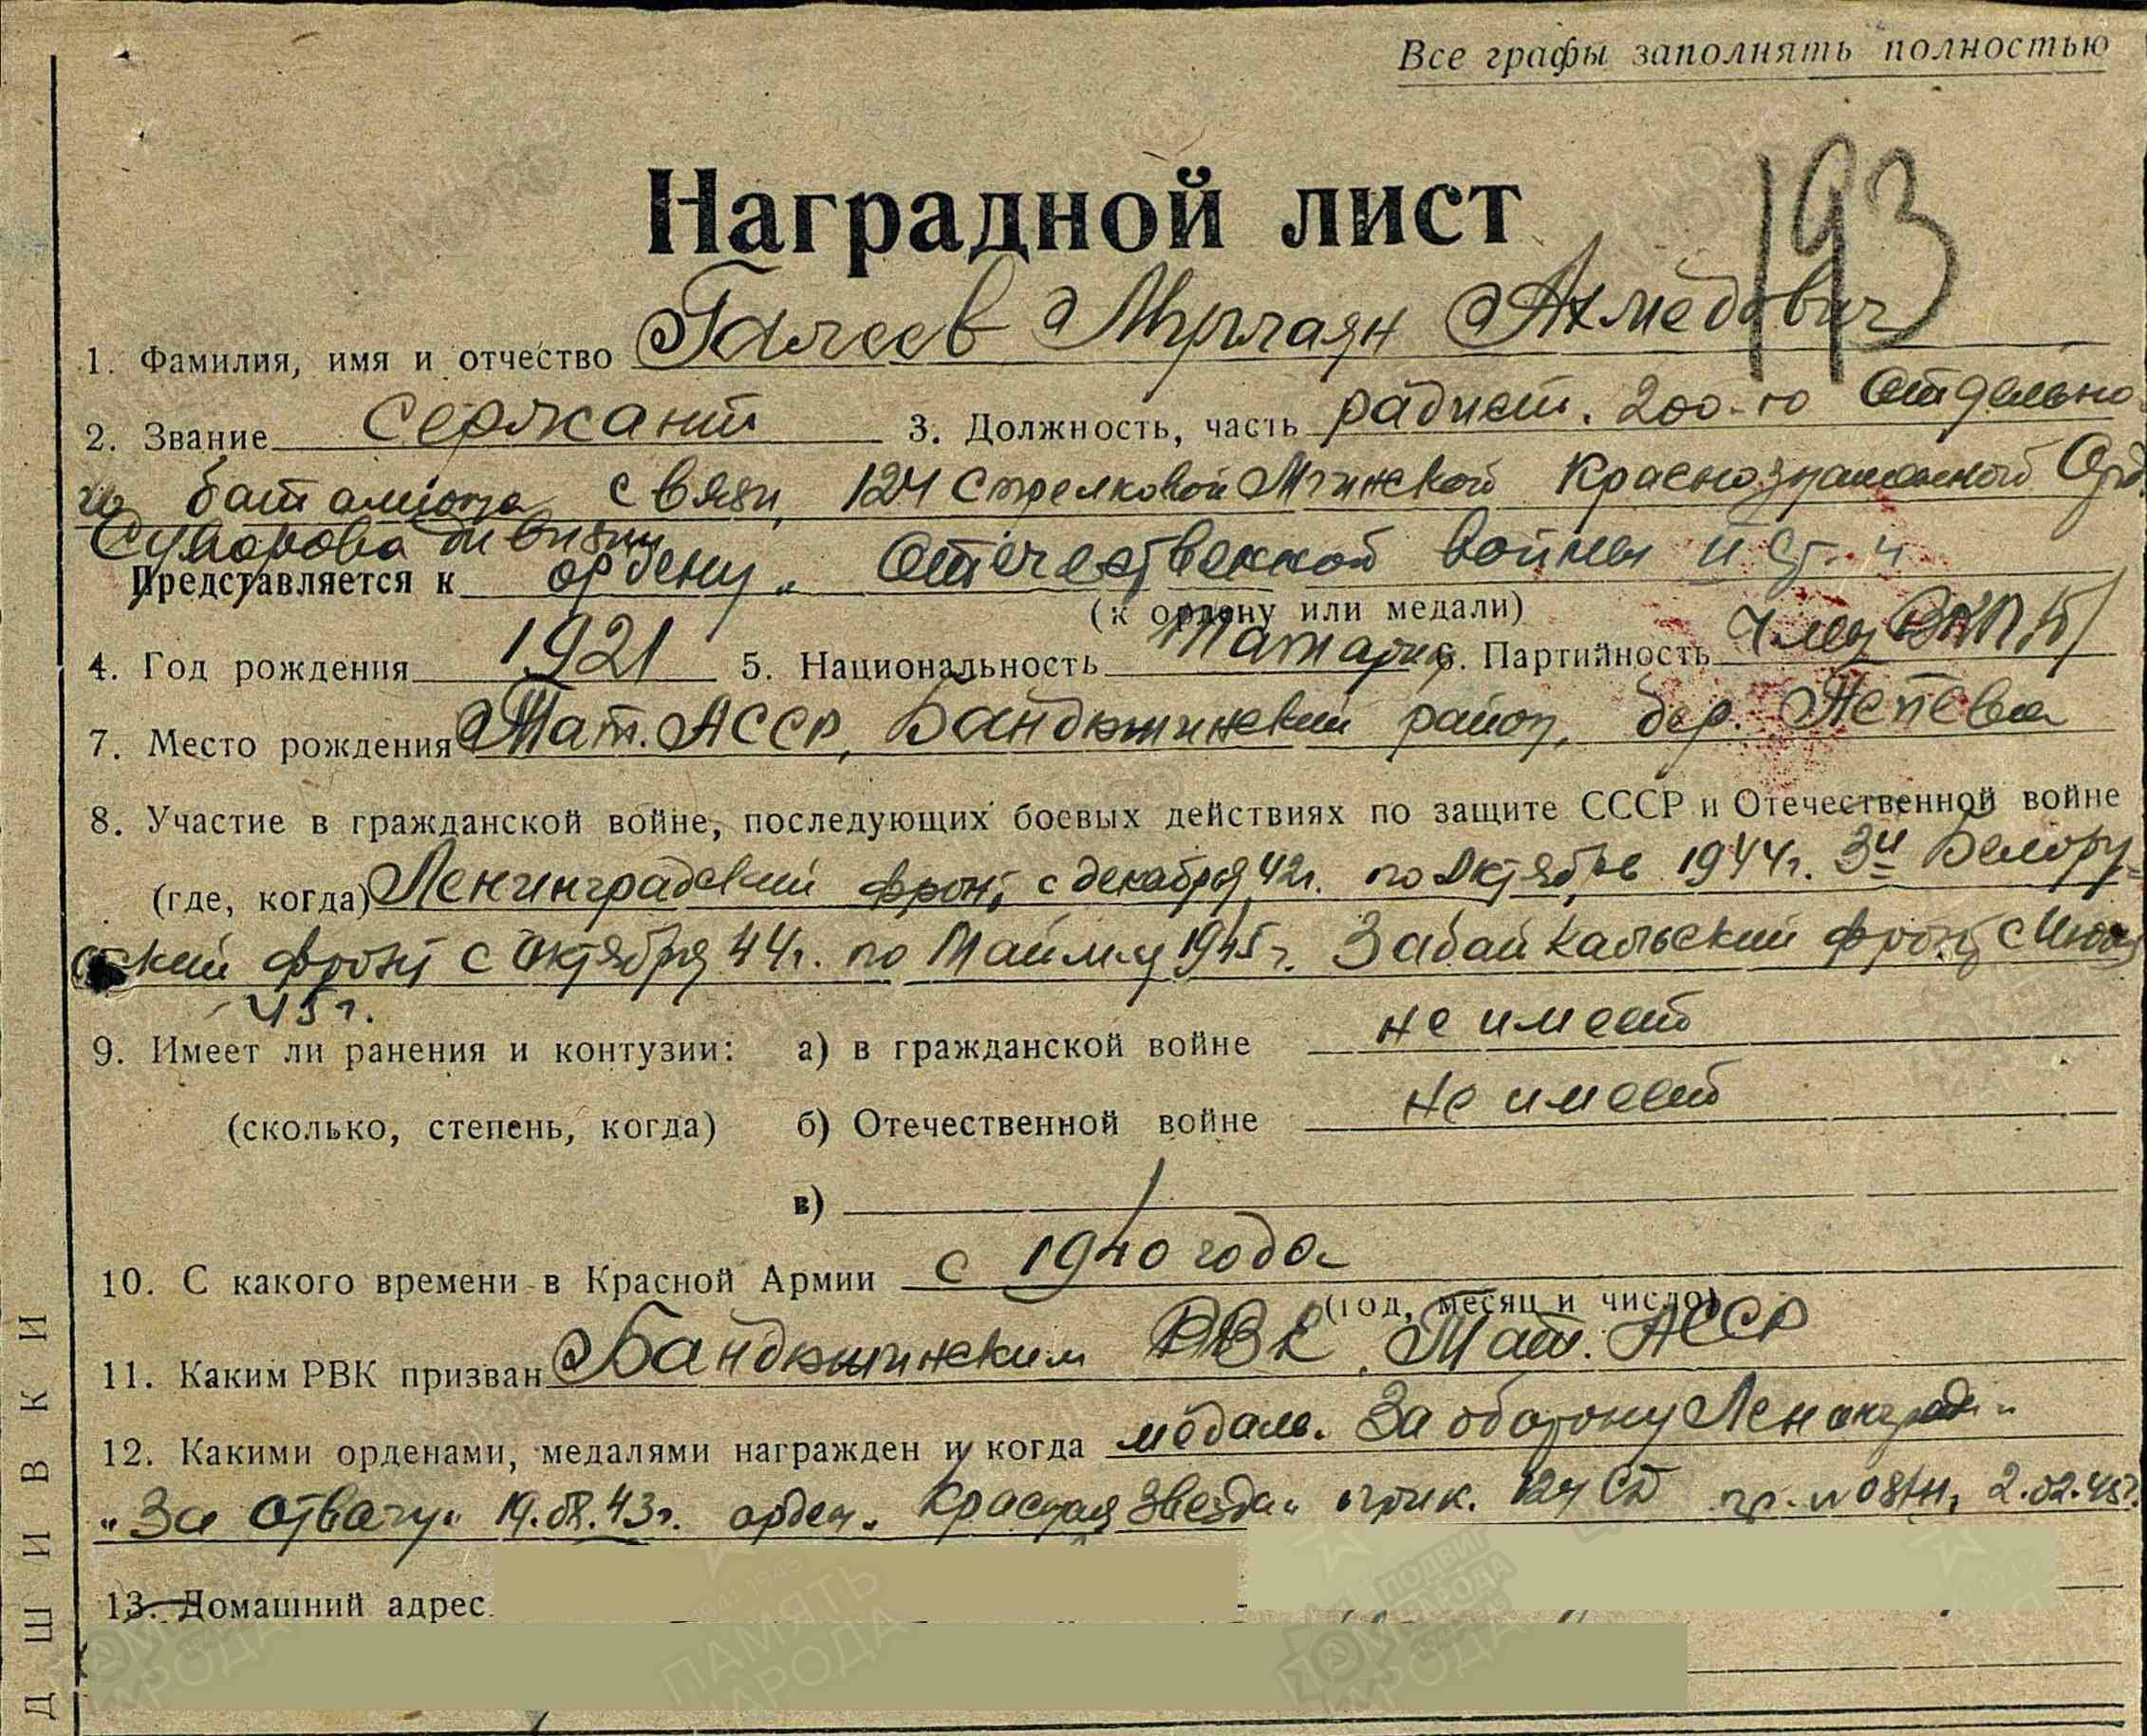 Все графы заполнять полностью
193
Наградной лист
1. Фамилия, имя и отчество Галеев Ахмедович
2. Звание сержант 3. Должность, часть радист. 200-го Отдельно
го батальона связи, 124 стрелковой Мгинской Краснознаменной Орд.
Суворова дивизии
Представляется к ордену „Отечественной войны II ст."
(к ордену или медали)
4. Год рождения 1921 5. Национальность татарин 6. Партийность Член ВКП/б/
7. Место рождения Тат. АССР, Бандюжинский район, дер.
8. Участие в гражданской войне, последующих боевых действиях по защите СССР и Отечественной войне
(где, когда) Ленинградский фронт с декабря 42г. по Октябрь 1944г. 3й Белорус-
ский фронт с октября 44г. по Май м-ц 1945г. Забайкальский фронт с
45г.
9. Имеет ли ранения и контузии: а) в гражданской войне не имеет
(сколько, степень, когда) б) Отечественной войне не имеет
в)
10. С какого времени в Красной Армии с 1940 года
(год, месяц и число)
11. Каким РВК призван Бандюжинским РВК, Тат. АССР
12. Какими орденами, медалями награжден и когда медаль „За оборону Ленинграда"
„За отвагу" 19.08.43г. орден „Красная Звезда" 124 СД пр. № 2.02.45г.
13. Домашний адрес
ДШИВКИ
ПАМЯТЬ НАРОДА
ПОДВИГ НАРОДА